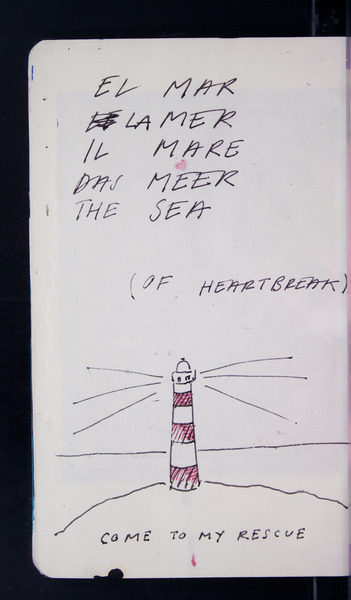 EL MAR
LA MER
IL MARE
DAS MEER
THE SEA
(OF HEARTBREAK)
COME TO MY RESCUE